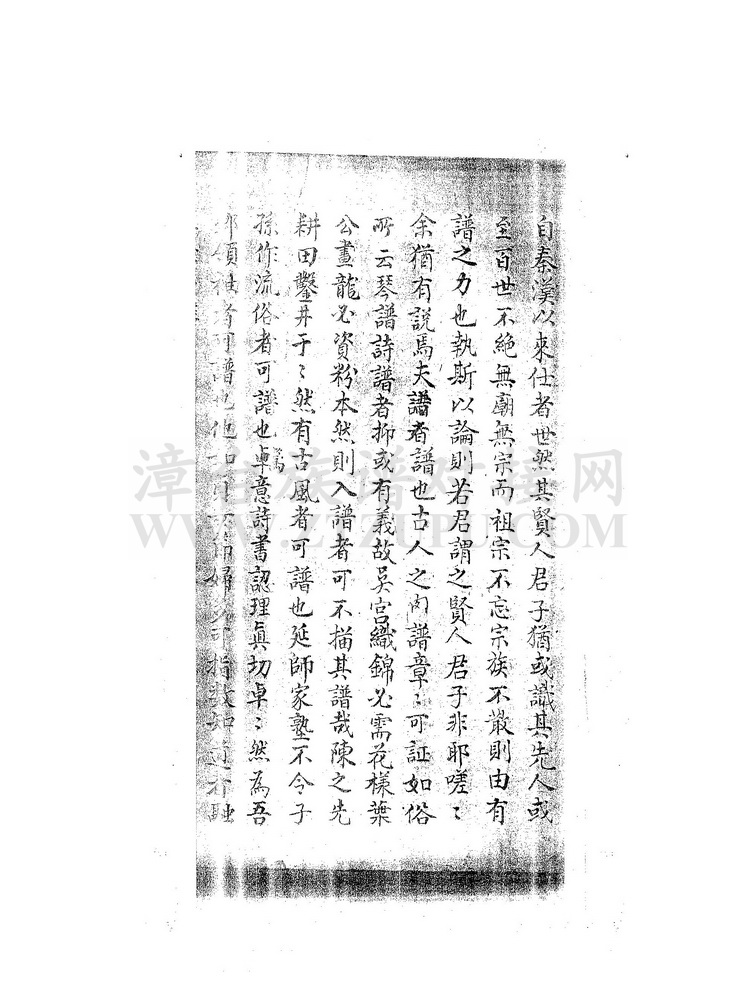 自秦漢以來仕者世然其賢人君子猶或識其先人或
至百世不絕無廟無宗而祖宗不忘宗族不散則由有
譜之力也執斯以論則若君謂之賢人君子非耶嗟〻
余猶有說焉夫譜者譜也古人之內譜章〻可証如俗
所云琴譜詩譜者抑或有義故吳宮織錦必需花樣葉
公畫龍必資粉本然則入譜者可不描其譜哉陳之先
耕田鑿井于〻然有古風者可譜也延師家塾不令子
孫作流俗者可譜也卓意詩書認理真切卓〻然為吾
鄉領袖者可譜也他如
節婦
可指
融
漳台族谱对接网
WWW.ZTZUPU.COM